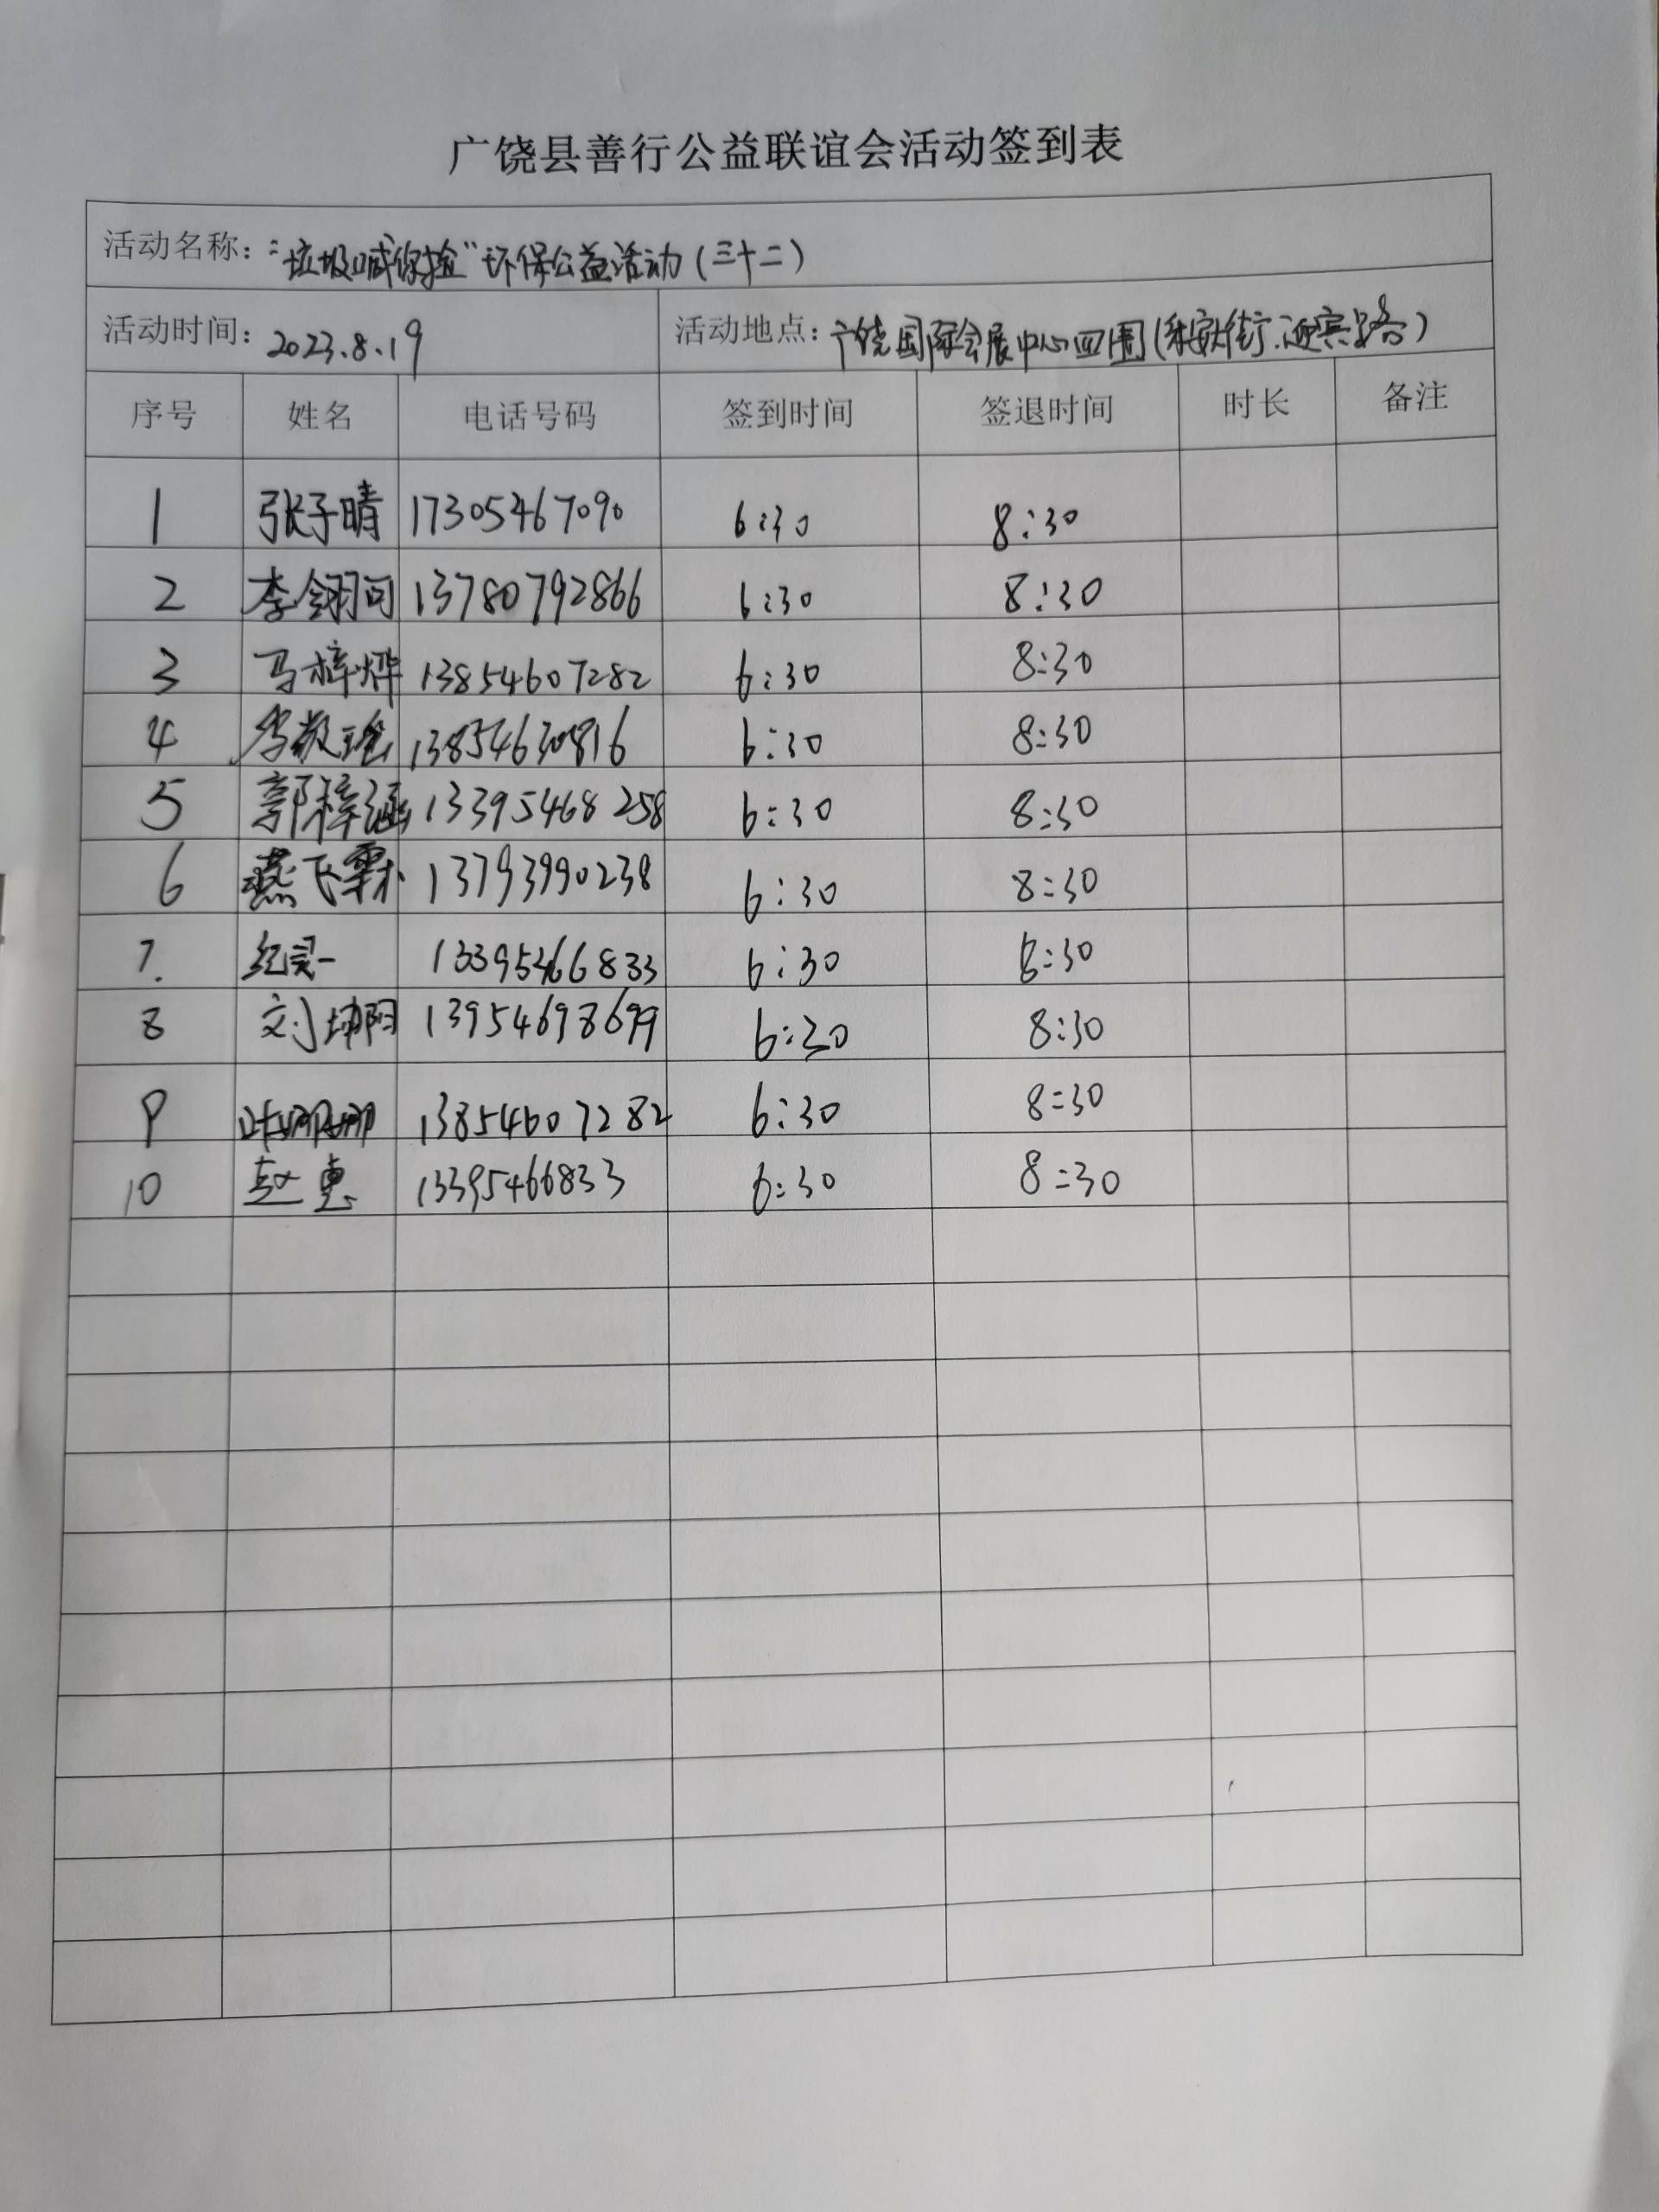 广饶县善行公益联谊会活动签到表
活动名称：“垃圾喊你捡”环保公益活动（三十二）
活动时间：2023.8.19 活动地点：广饶国际会展中心四围（乐安大街.迎宾路）
序号 姓名 电话号码 签到时间 签退时间 时长 备注
1 张子晴 17305467090 6:30 8:30
2 李翎问 13780792866 6:30 8:30
3 马梓烨 13854607282 6:30 8:30
4 李敬瑶 13854630816 6:30 8:30
5 郭梓涵 13395468258 6:30 8:30
6 燕飞霖 13793990238 6:30 8:30
7. 纪灵一 13395466833 6:30 8:30
8 刘坤阳 13954698699 6:30 8:30
9 叶娜娜 13854607282 6:30 8:30
10 赵惠 13395466833 6:30 8:30